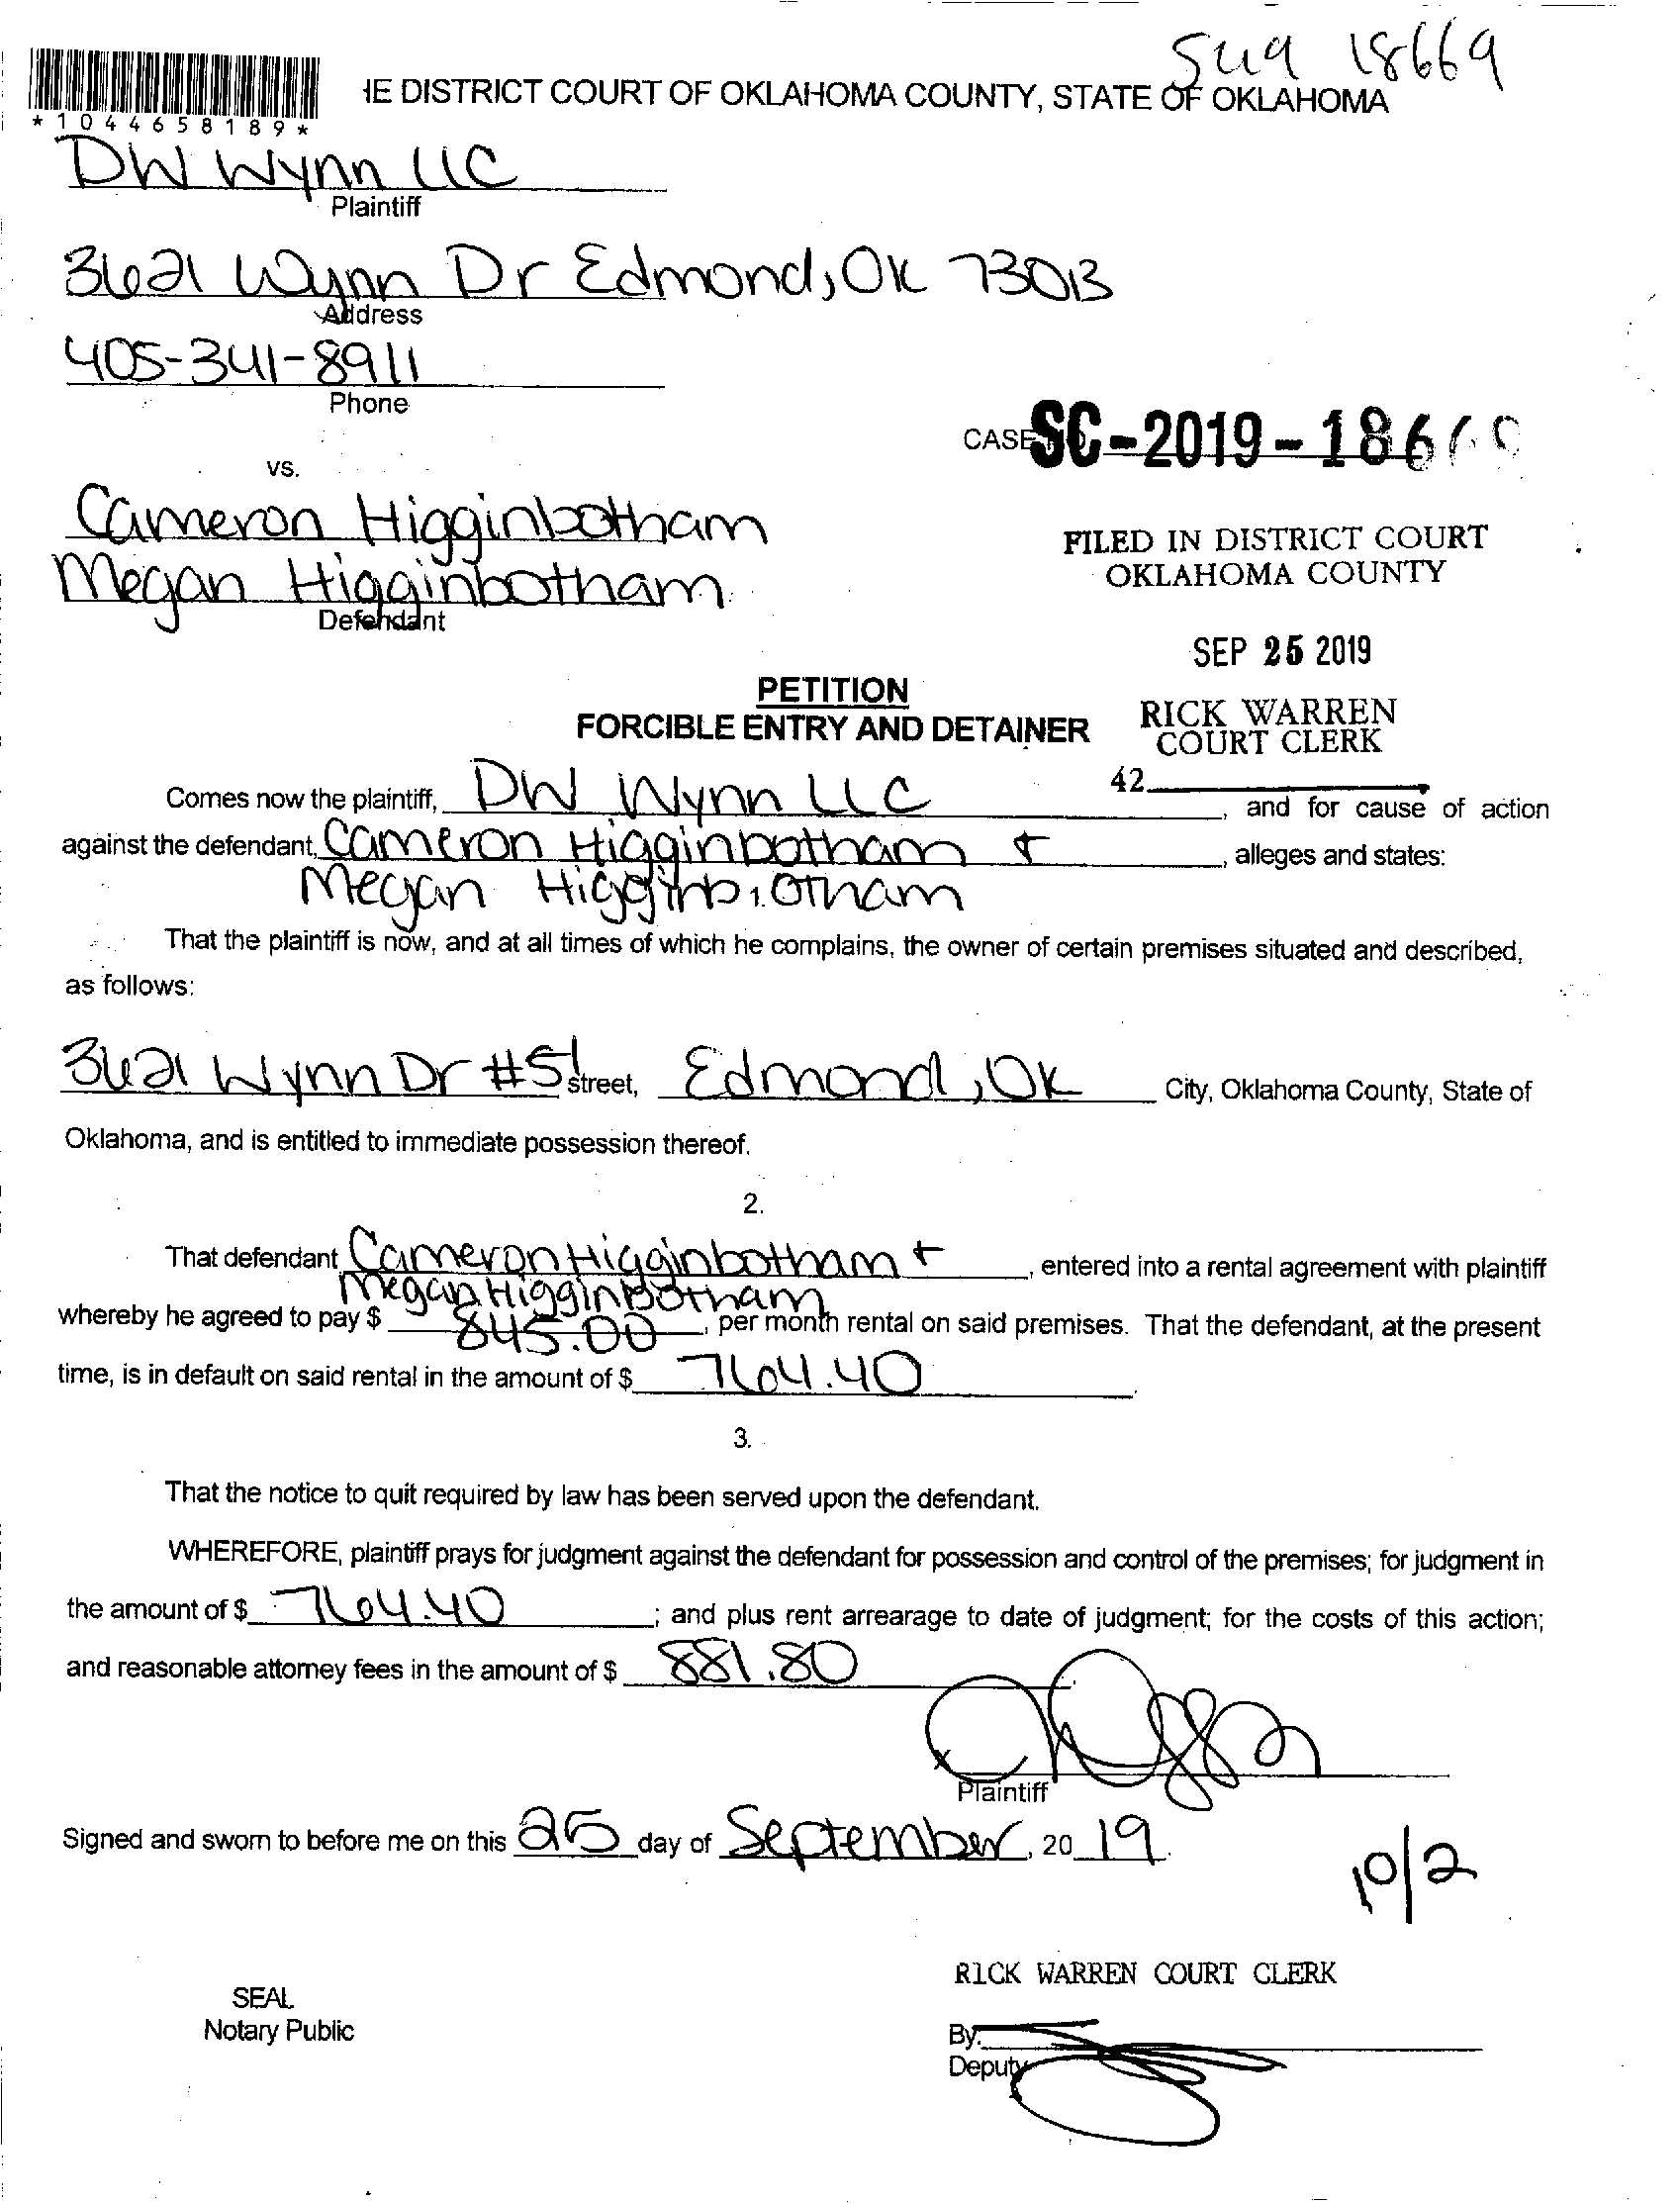 Sug 18669
*1044658189*
HE DISTRICT COURT OF OKLAHOMA COUNTY, STATE OF OKLAHOMA
DW Wynn LLC
Plaintiff
3621 Wynn Dr Edmond, OK 73013
Address
405-341-8911
Phone
CASE SC-2019-1866
vs.
Cameron Higginbotham
Megan Higginbotham
Defendant
FILED IN DISTRICT COURT
OKLAHOMA COUNTY
SEP 25 2019
RICK WARREN
COURT CLERK
42
PETITION
FORCIBLE ENTRY AND DETAINER
Comes now the plaintiff, DW Wynn LLC, and for cause of action
against the defendant, Cameron Higginbotham +, alleges and states:
Megan Higginbotham
That the plaintiff is now, and at all times of which he complains, the owner of certain premises situated and described,
as follows:
3621 Wynn Dr #51 street, Edmond, OK City, Oklahoma County, State of
Oklahoma, and is entitled to immediate possession thereof.
2.
That defendant Cameron Higginbotham +, entered into a rental agreement with plaintiff
Megan Higginbotham
whereby he agreed to pay $ 845.00, per month rental on said premises. That the defendant, at the present
time, is in default on said rental in the amount of $ 764.40.
3.
That the notice to quit required by law has been served upon the defendant.
WHEREFORE, plaintiff prays for judgment against the defendant for possession and control of the premises; for judgment in
the amount of $ 764.40; and plus rent arrearage to date of judgment; for the costs of this action;
and reasonable attorney fees in the amount of $ 881.80.
x
Plaintiff
Signed and sworn to before me on this 25 day of September, 20 19.
10/2
RICK WARREN COURT CLERK
SEAL
Notary Public
By:
Deputy